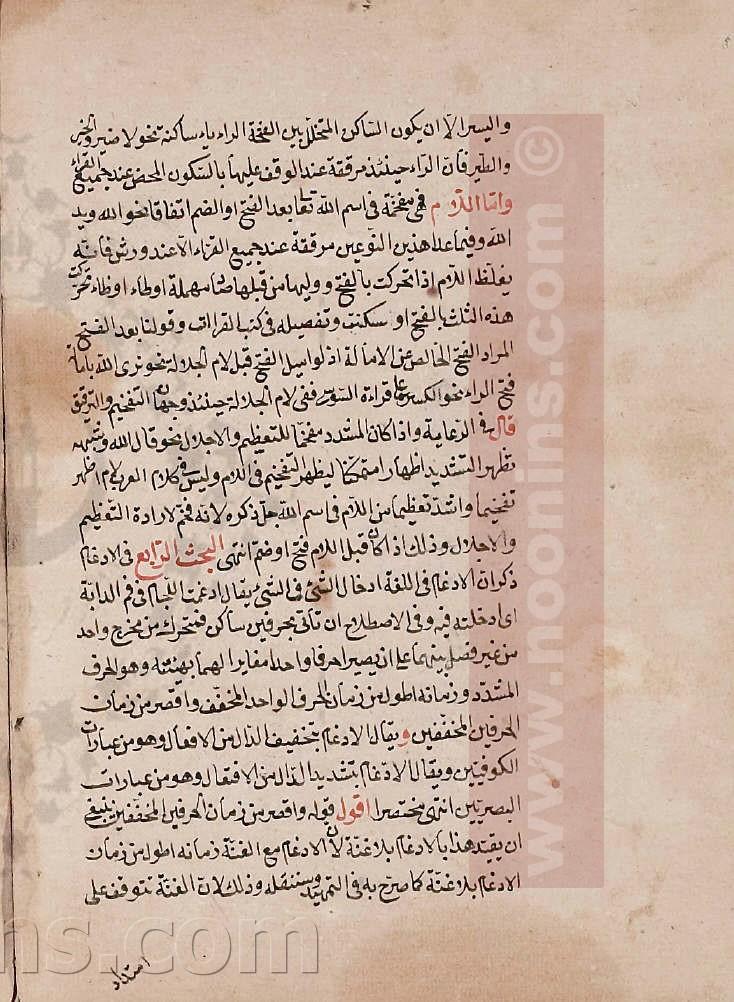 واليسر الا ان يكون الساكن المتخلل بين الفتحة الراء ياء ساكنة نحو لا ضير والخير
والطير فان الراء حينئذ مرققة عند الوقف عليها بالسكون المحض عند جميع القراء
واما اللام فهي مفخمة في اسم الله تعا بعد الفتح او الضم اتفاقا نحو الله ويد
الله وفيما عدا هذين النوعين مرققة عند جميع القراء الا عند ورش فانه
يغلظ اللام اذا تحركت بالفتح ووليها من قبلها صاد مهملة او طاء او ظاء تحركت
هذه الثلث بالفتح او سكنت وتفصيله في كتب القراات وقولنا بعد الفتح
المراد الفتح الخالص عن الامالة اذ لو اميل الفتح قبل لام الجلالة نحو نرى الله بامالة
فتح الراء نحو الكسر على قراءة السوسي ففي لام الجلالة حينئذ وجهان التفخيم والترقيق
قال في الرعاية واذا كان المشدد مفخما للتعظيم والاجلال نحو قال الله وشبهه
تظهر التشديد اظهارا متمكنا ليظهر التفخيم في اللام وليس في كلام العرب لام اظهر
تفخيما واشد تعظيما من اللام في اسم الله جل ذكره لانه فخم لارادة التعظيم
والاجلال وذلك اذا كان قبل اللام فتح او ضم انتهى البحث الرابع في الادغام
ذكر ان الادغام في اللغة ادخال الشئ في الشئ يقال ادغمت اللجام في فم الدابة
اى ادخلته فيه وفي الاصطلاح ان تأتي بحرفين ساكن فمتحرك من مخرج واحد
من غير فصل بينهما على ان يصير احرفا واحدا مغايرا لهما بهيئته وهو الحرف
المشدد وزمانه اطول من زمان الحرف الواحد المخفف واقصر من زمان
الحرفين المخففين ويقال الادغام بتخفيف الدال من الافعال وهو من عبارات
الكوفيين ويقال الادغام بتشديد الدال من الافتعال وهو من عبارات
البصريين انتهى مختصرا اقول قوله واقصر من زمان الحرفين المخففين ينبغي
ان يقيد هذا بالادغام بلا غنة لان الادغام مع الغنة زمانه اطول من زمان
الادغام بلا غنة كما صرح به في التمهيد وسننقله وذلك لان الغنة تتوقف على
امتداد
www.noonins.com ©
ns.com